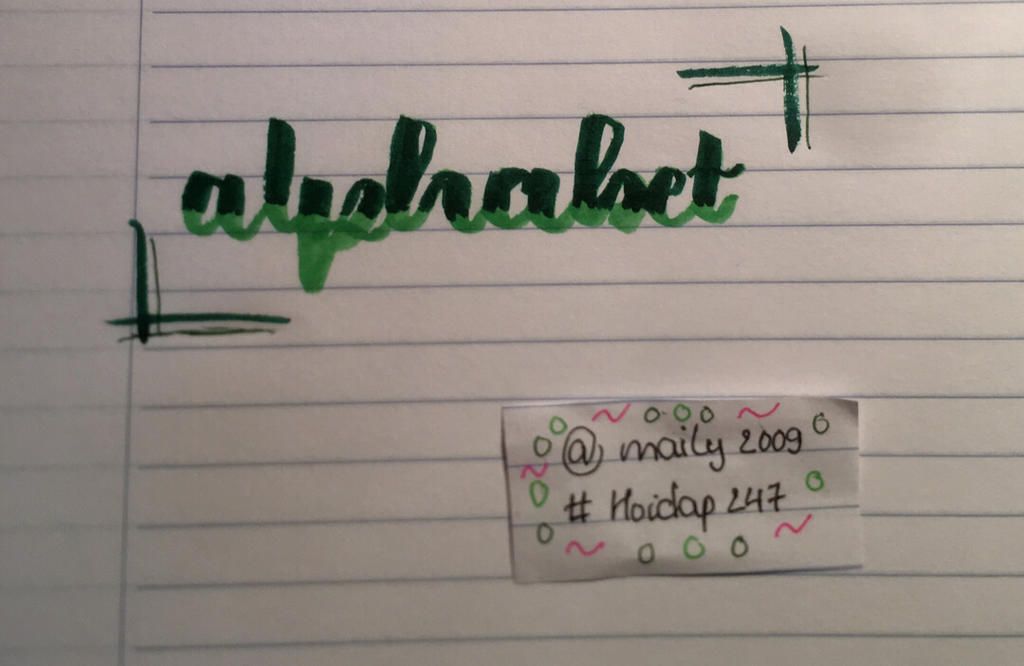 alphabet
@ maily 2009
# Hoidap 247